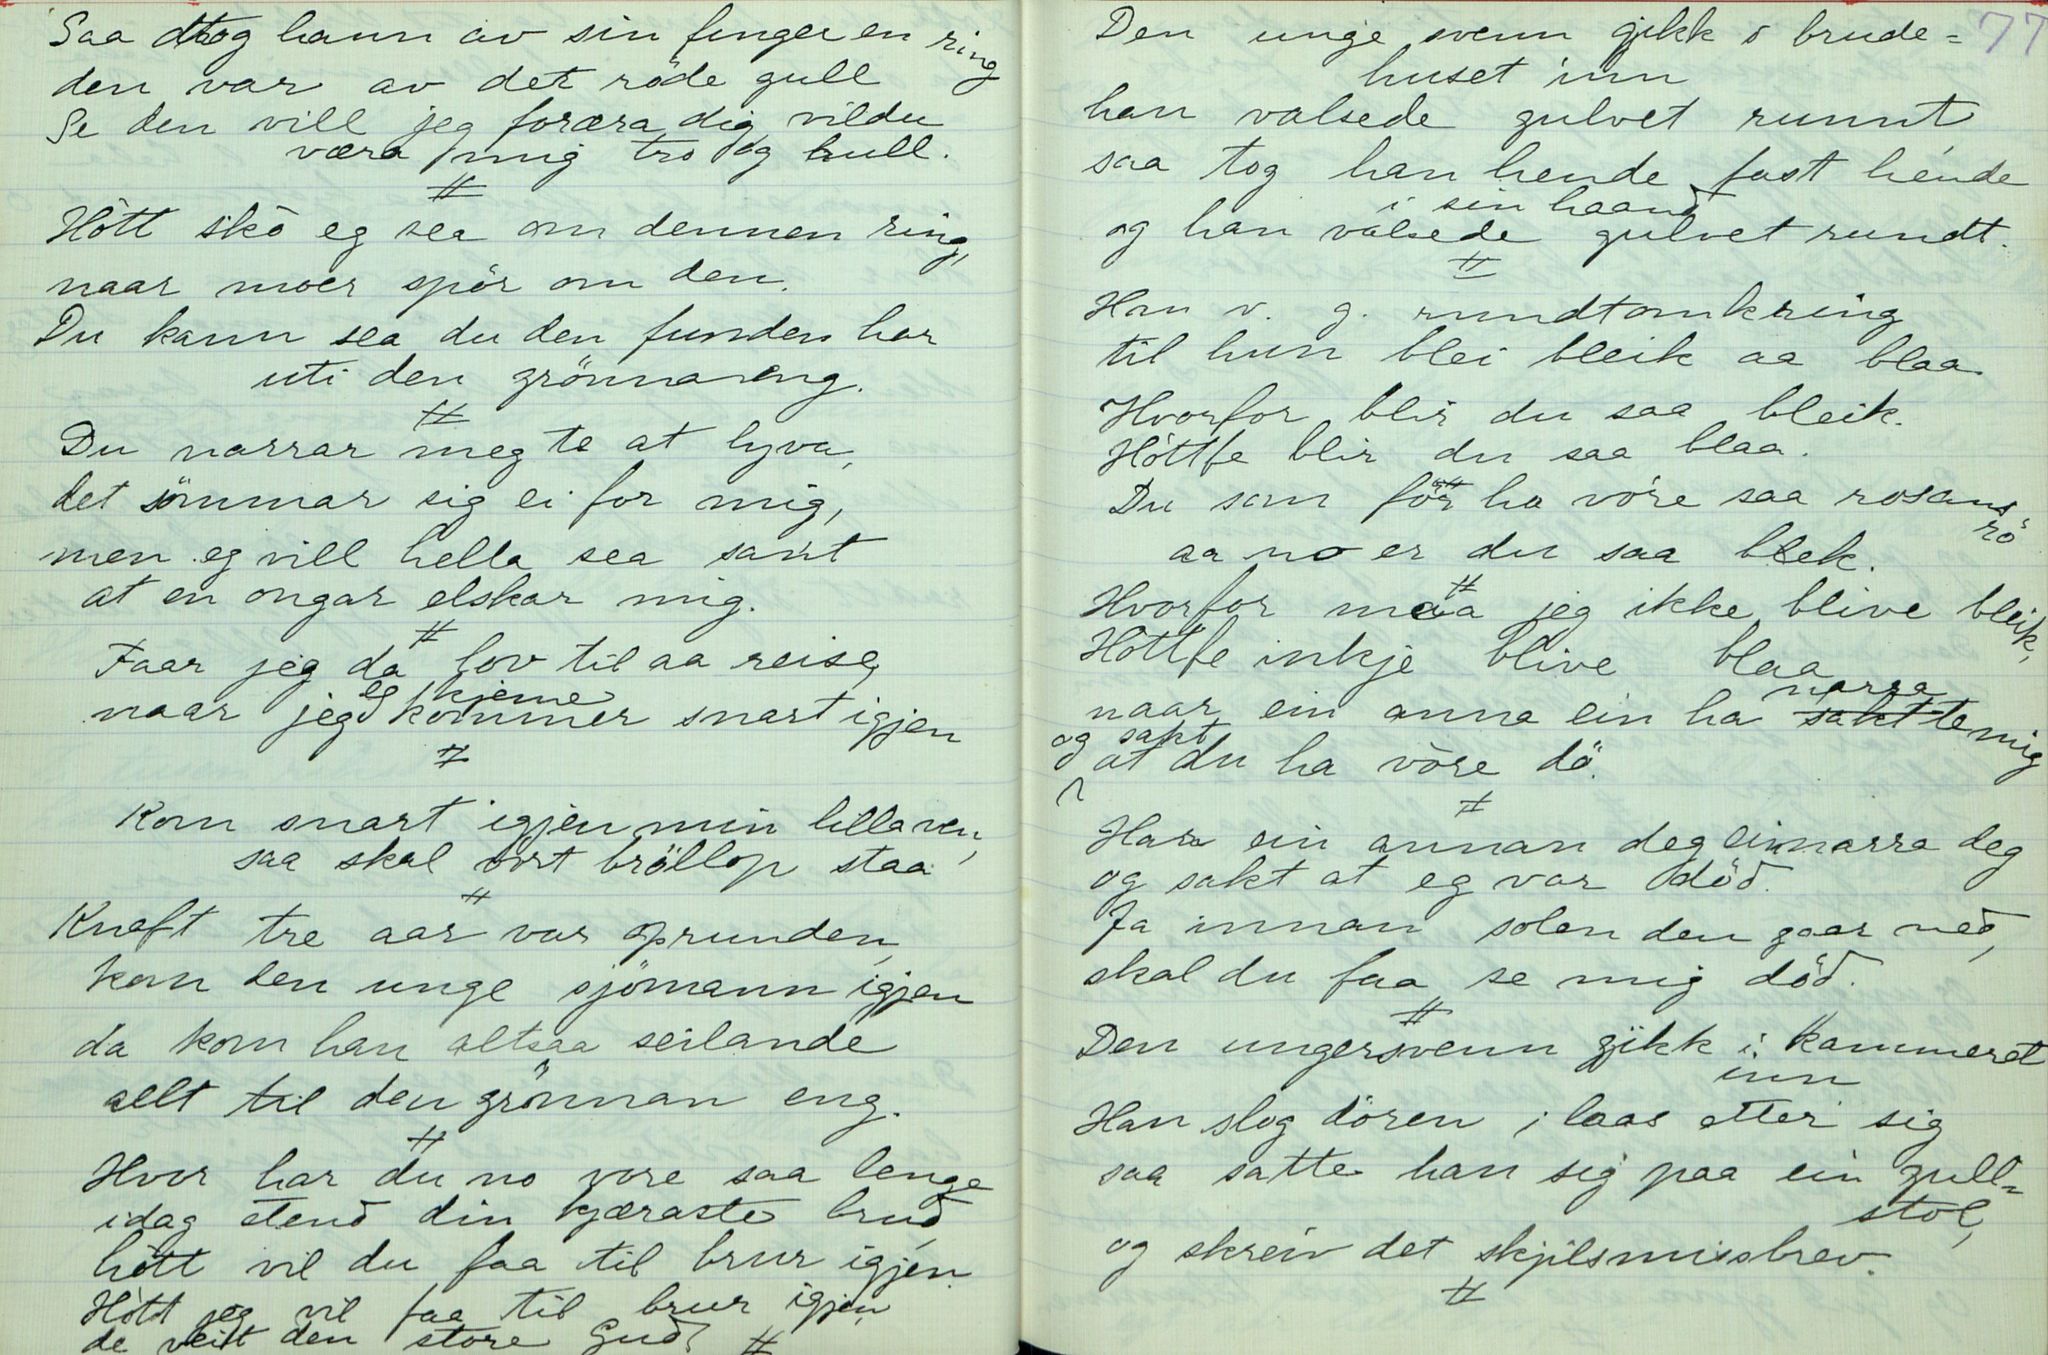 Saa tog hann av sin finger en ring
den var av det röde gull
Se den vill jeg foræra dig, vildu
væra mig tro og hull.
#
Hött skö eg sea om dennen ring,
naar moer spör om den.
Du kann sea du den funden har
uti den grönna eng.
#
Du narrar meg te at lyva,
det sömmar sig ei for mig,
men eg vill hella sea sant
at en ongar elskar mig.
#
Faar jeg da lov til aa reise,
eg kjeme
naar jeg kommer snart igjen
#
Kom snart igjen min lilla ven,
saa skal vort bröllop staa
#
Knaft tre aar var oprunden,
kom den unge sjömann igjen
da kom han altsaa seilande
allt til den grönnan eng.
#
Hvor har du no vore saa lenge
idag stend din kjæraste brud,
hött vil du faa til brur igjen
Hött jeg vil faa til brur igjen,
de veit den store Gud #
77
Den unge svenn gjikk i brude=
huset inn
han valsede gulvet runnt
saa tog han hende fast hende
i sin haand
og han valsede gulvet rundt.
#
Han v. g. rundtomkring
til hun blei bleik aa blaa
Hvorfor blir du saa bleik.
Höttfe blir du saa blaa.
Du som för ha vöre saa rosans
rö
aa no er du saa blek.
#
Hvorfor maa jeg ikke blive bleik,
Höttfe inkje blive blaa
narra
naar ein anna ein ha sakt te mig
og sakt
at du ha vöre dö.
#
Har ein annan deg einarra deg
og sakt at eg var död.
Ja innan solen den gaar ned,
skal du faa se mig död.
#
Den ungersvenn gjikk i kammeret
inn
Han slog dören i laas etter sig
saa satte han sig paa ein gull=
stol,
og skreiv det skjilsmissbrev.
#